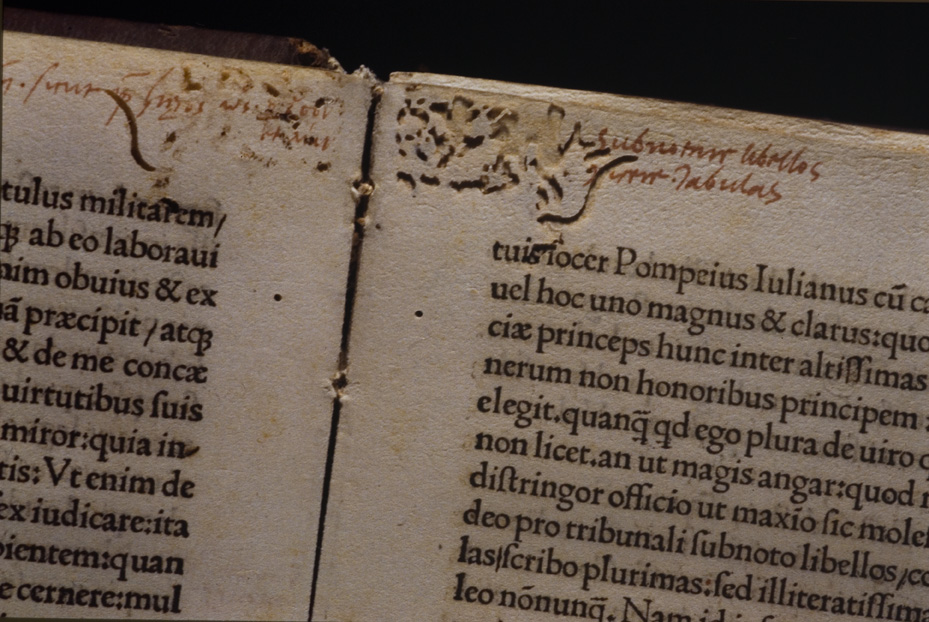 tulus militarem/
ab eo laboraui
nim obuius & ex
nã præcipit / atqꝫ
& de me concæ
uirtutibus suis
miror:quia in-
tis: Vt enim de
ex iudicare:ita
pientem:quan
e cernere:mul
subnotare libellos
tabulas
tuis socer Pompeius Iulianus cũ
uel hoc uno magnus & clarus:quo
ciæ princeps hunc inter altissimas
nerum non honoribus principem
elegit.quanq̃ qd ego plura de uiro
non licet.an ut magis angar:quod
distringor officio ut maxĩo sic moles
deo pro tribunali subnoto libellos/
las/scribo plurimas:sed illiteratissima
leo nõnunq̃. Nam